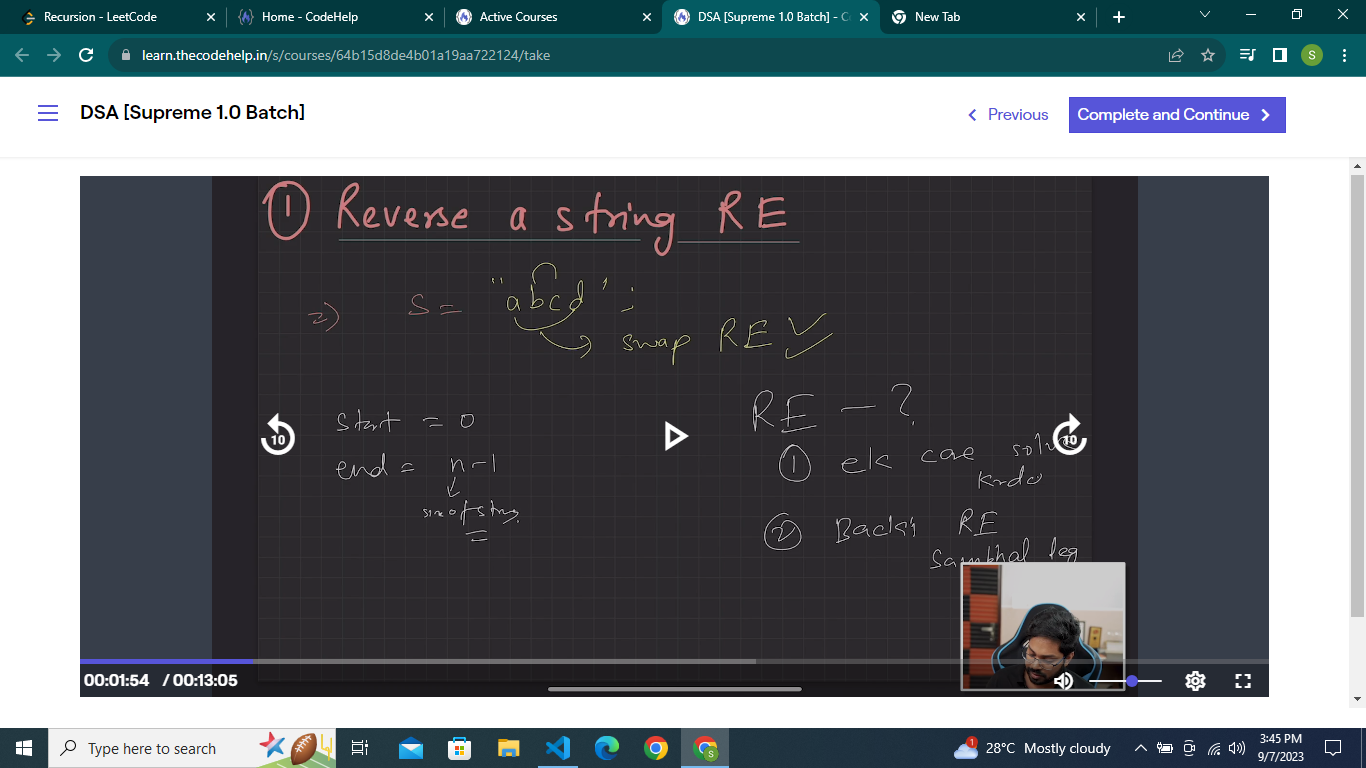 Recursion - LeetCode
Home - CodeHelp
Active Courses
DSA [Supreme 1.0 Batch] - C
New Tab
learn.thecodehelp.in/s/courses/64b15d8de4b01a19aa722124/take
S
DSA [Supreme 1.0 Batch]
Previous
Complete and Continue
① Reverse a string RE
=> S = "abcd" ;
swap RE ✓
start = 0
end = n-1
size of string
RE — ?
① ek case solve
krdo
② Baaki RE
sambhal lega
10
10
00:01:54 / 00:13:05
Type here to search
1
28°C Mostly cloudy
3:45 PM
9/7/2023